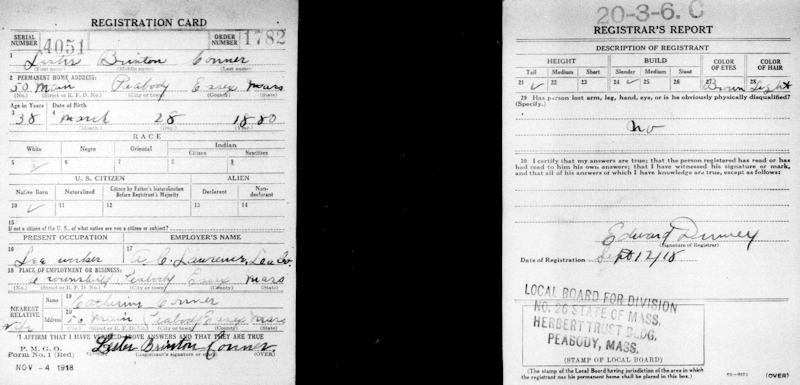 REGISTRATION CARD
SERIAL NUMBER 4051 ORDER NUMBER 1782
1 Lester Brinton Conner
(First name) (Middle name) (Last name)
2 PERMANENT HOME ADDRESS:
50 Main Peabody Essex Mass
(No.) (Street or R. F. D. No.) (City or town) (County) (State)
Age in Years Date of Birth
3 38 4 March 28 1880
(Month.) (Day.) (Year.)
RACE
White Negro Oriental Indian
Citizen Noncitizen
5 6 7 8 9
U. S. CITIZEN ALIEN
Native Born Naturalized Citizen by Father's Naturalization Before Registrant's Majority Declarant Non-declarant
10 ✓ 11 12 13 14
15
If not a citizen of the U. S., of what nation are you a citizen or subject?
PRESENT OCCUPATION EMPLOYER'S NAME
16 Lea worker 17 A. C. Lawrence Lea Co.
18 PLACE OF EMPLOYMENT OR BUSINESS:
Peabody Essex Mass
(No.) (Street or R. F. D. No.) (City or town) (County) (State)
NEAREST RELATIVE Name 19 Catherine Conner
Wife Address 20 50 Main Peabody Essex Mass
(No.) (Street or R. F. D. No.) (City or town) (County) (State)
I AFFIRM THAT I HAVE VERIFIED ABOVE ANSWERS AND THAT THEY ARE TRUE
P. M. G. O.
Form No. 1 (Red) Lester Brinton Conner
(Registrant's signature or mark) (OVER)
NOV - 4 1918
20-3-6. C
REGISTRAR'S REPORT
DESCRIPTION OF REGISTRANT
HEIGHT BUILD COLOR OF EYES COLOR OF HAIR
Tall Medium Short Slender Medium Stout
21 ✓ 22 23 24 ✓ 25 26 27 Brown 28 Light
29 Has person lost arm, leg, hand, eye, or is he obviously physically disqualified?
(Specify.)
No
30 I certify that my answers are true; that the person registered has read or has
had read to him his own answers; that I have witnessed his signature or mark,
and that all of his answers of which I have knowledge are true, except as follows:
Edward
(Signature of Registrar)
Date of Registration Sept 12/18
LOCAL BOARD FOR DIVISION
NO. 26 STATE OF MASS,
HERBERT TRUST BLDG,
PEABODY, MASS,
(STAMP OF LOCAL BOARD)
(The stamp of the Local Board having jurisdiction of the area in which
the registrant has his permanent home shall be placed in this box.)
(OVER)